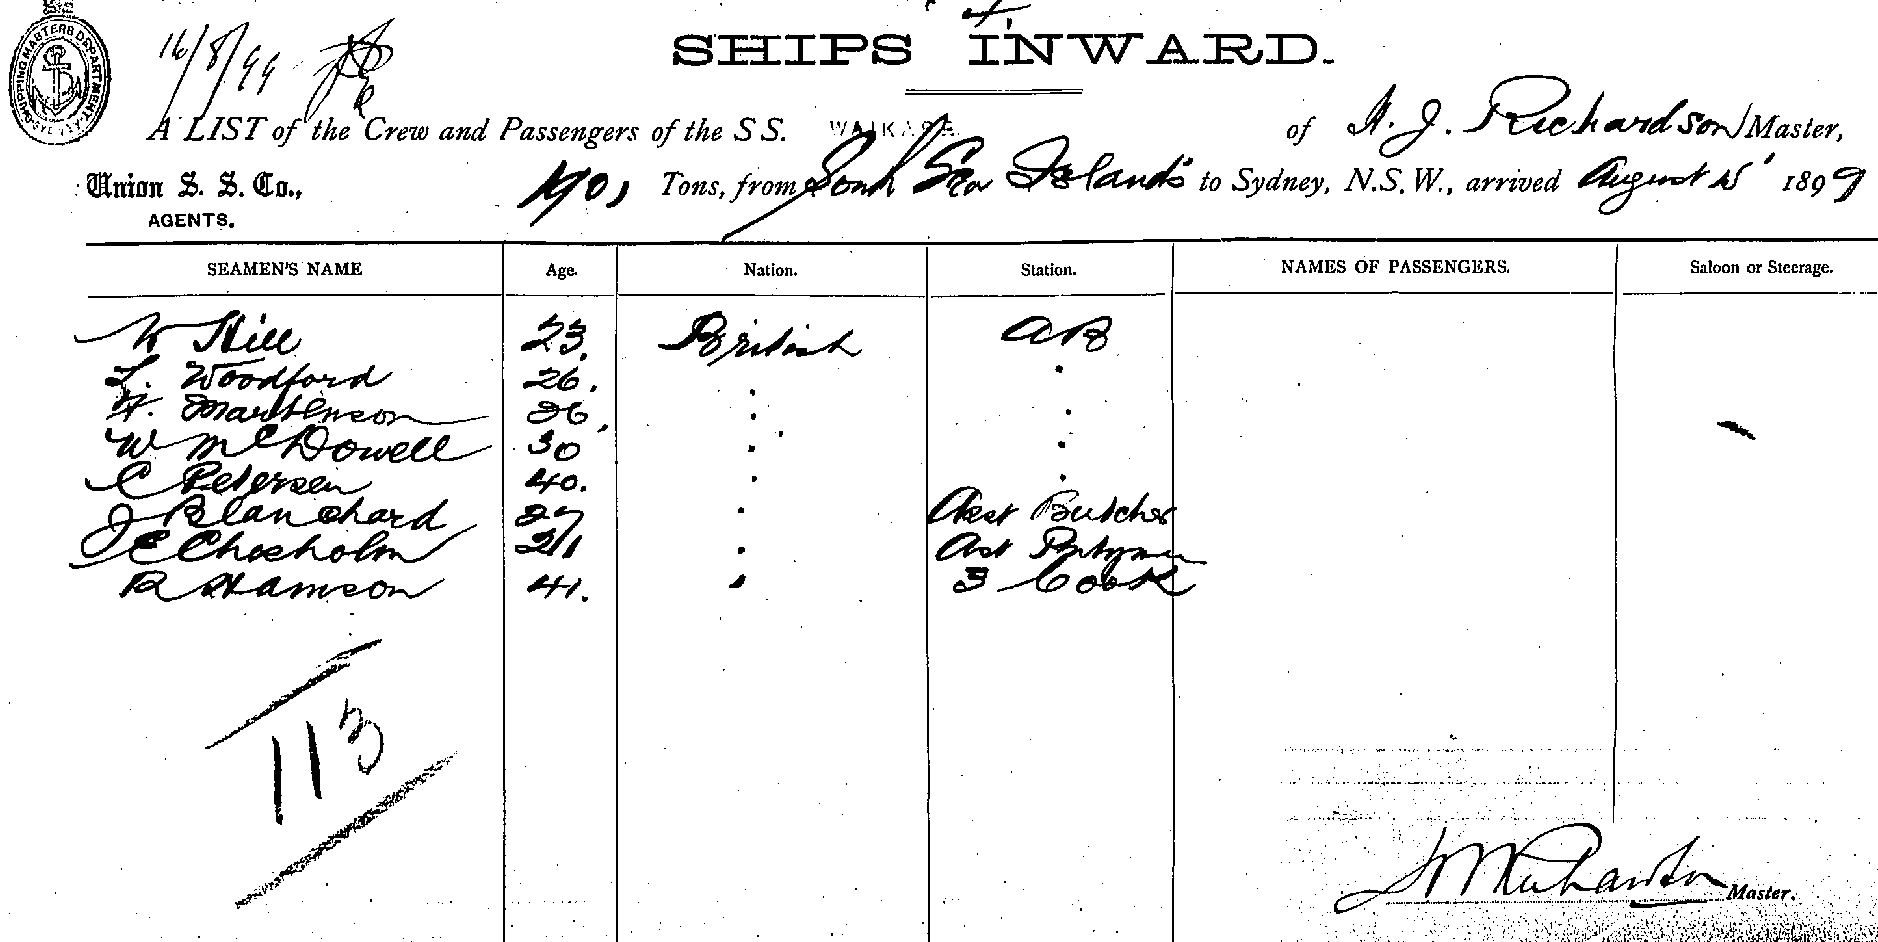 4
SHIPPING MASTERS DEPARTMENT
SYDNEY
16/8/99
SHIPS INWARD.
A LIST of the Crew and Passengers of the S S. WAIKARE of H. J. Richardson Master,
Union S. S. Co., 1901 Tons, from South Sea Islands to Sydney, N.S.W., arrived August 15 1899
AGENTS.
SEAMEN'S NAME Age. Nation. Station. NAMES OF PASSENGERS. Saloon or Steerage.
W Hill 23. British AB
L. Woodford 26. " "
H. Martenson 26, " "
W McDowell 30 " "
C Petersen 40. " "
J Blanchard 27 " Asst Butcher
J E Chisholm 21 " Ast Pntyman
R Hamson 41. " 3 Cook
113
Richardson Master.